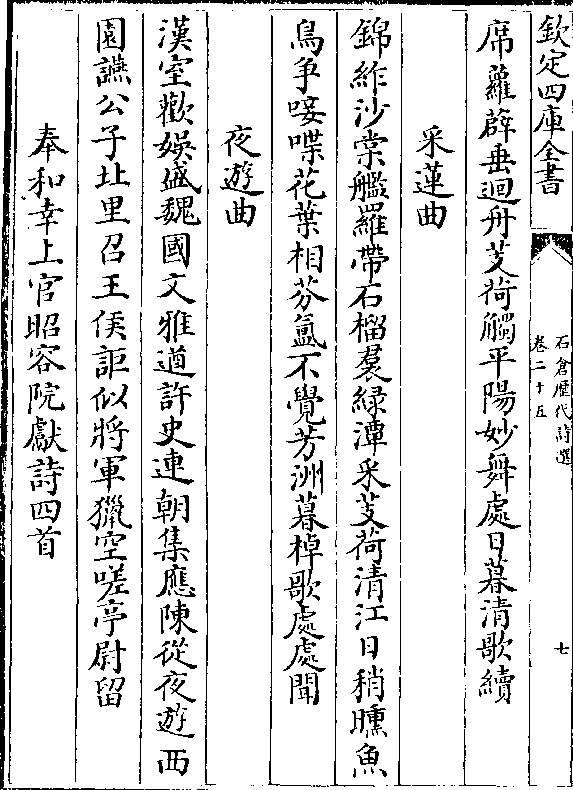 欽定四庫全書
石倉歴代詩選
卷二十五
七
席蘿薜垂迴舟芰荷觸平陽妙舞處日暮清歌續
采蓮曲
錦䋏沙棠艦羅帶石榴裠緑潭采芰荷清江日稍曛魚
鳥爭唼喋花葉相芬氲不覺芳洲暮棹歌處處聞
夜遊曲
漢室歡娯盛魏國文雅遒許史連朝集應陳從夜遊西
園讌公子北里召王侯詎似將軍獵空嗟亭尉留
奉和幸上官昭容院獻詩四首